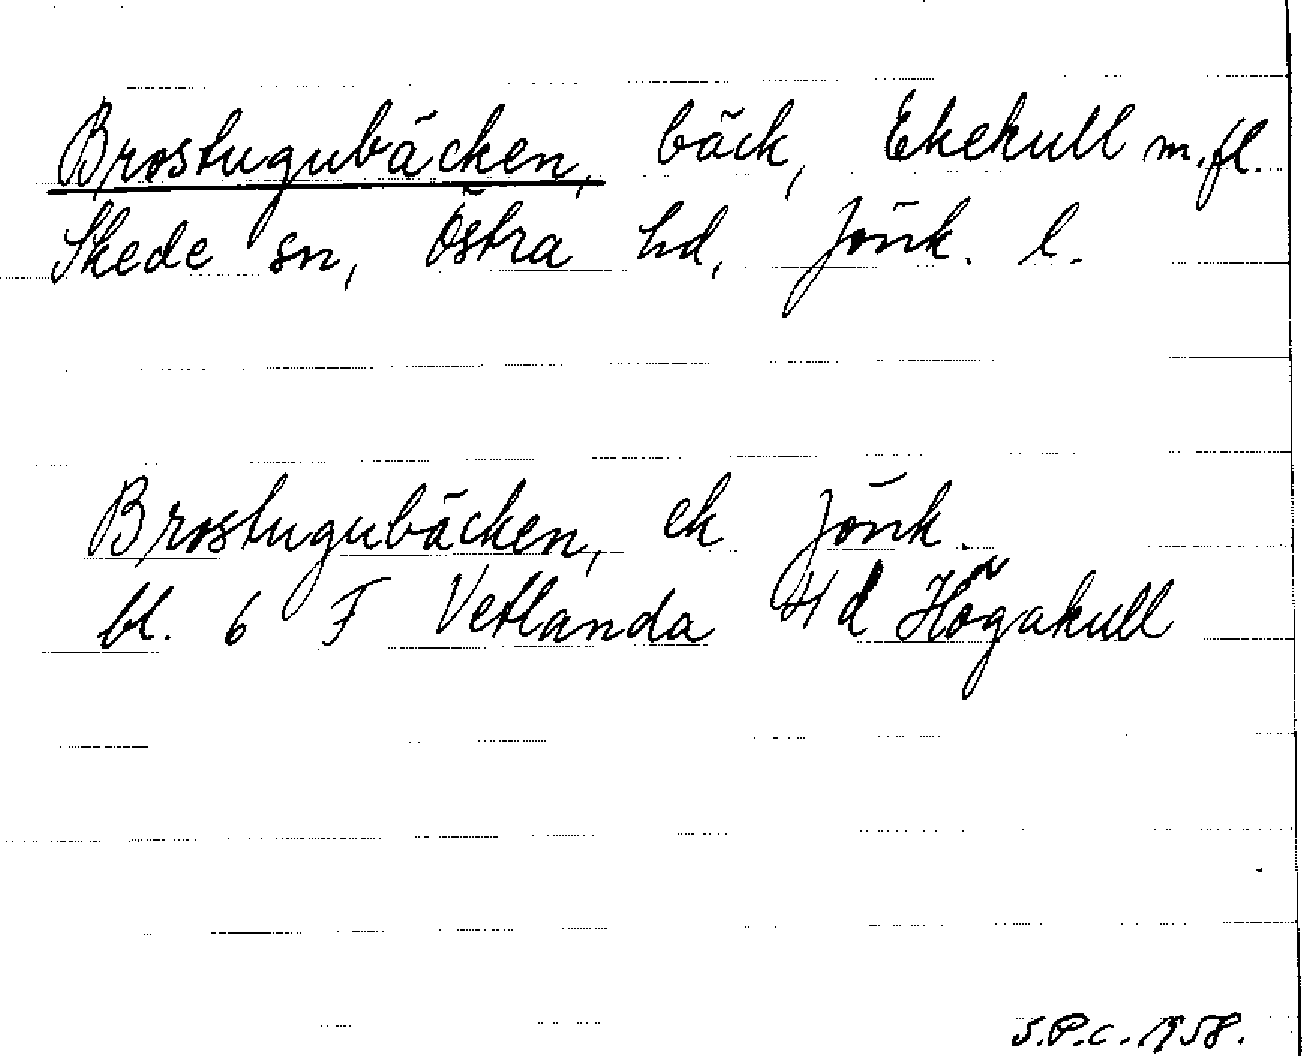 Brostugubäcken, bäck, Ekekull m.fl.
Skede sn, Östra hd, Jönk. l.
Brostugubäcken, ek Jönk.
bl. 6 F Vetlanda 4d Högakull
S.P.C. 1958.